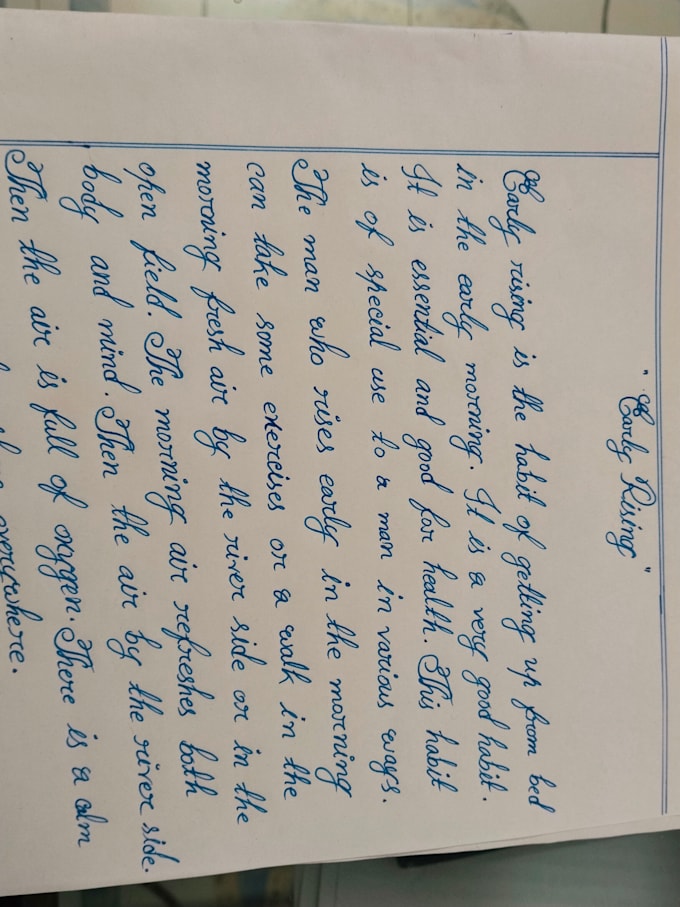 " Early Rising "
Early rising is the habit of getting up from bed
in the early morning. It is a very good habit.
It is essential and good for health. This habit
is of special use to a man in various ways.
The man who rises early in the morning
can take some exercises or a walk in the
morning fresh air by the river side or in the
open field. The morning air refreshes both
body and mind. Then the air by the river side.
Then the air is full of oxygen. There is a calm
everywhere.